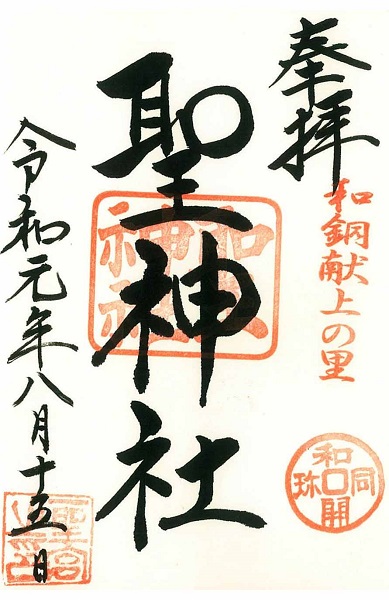 奉拝
和銅献上の里
聖神社
令和元年八月十五日
和同開珎